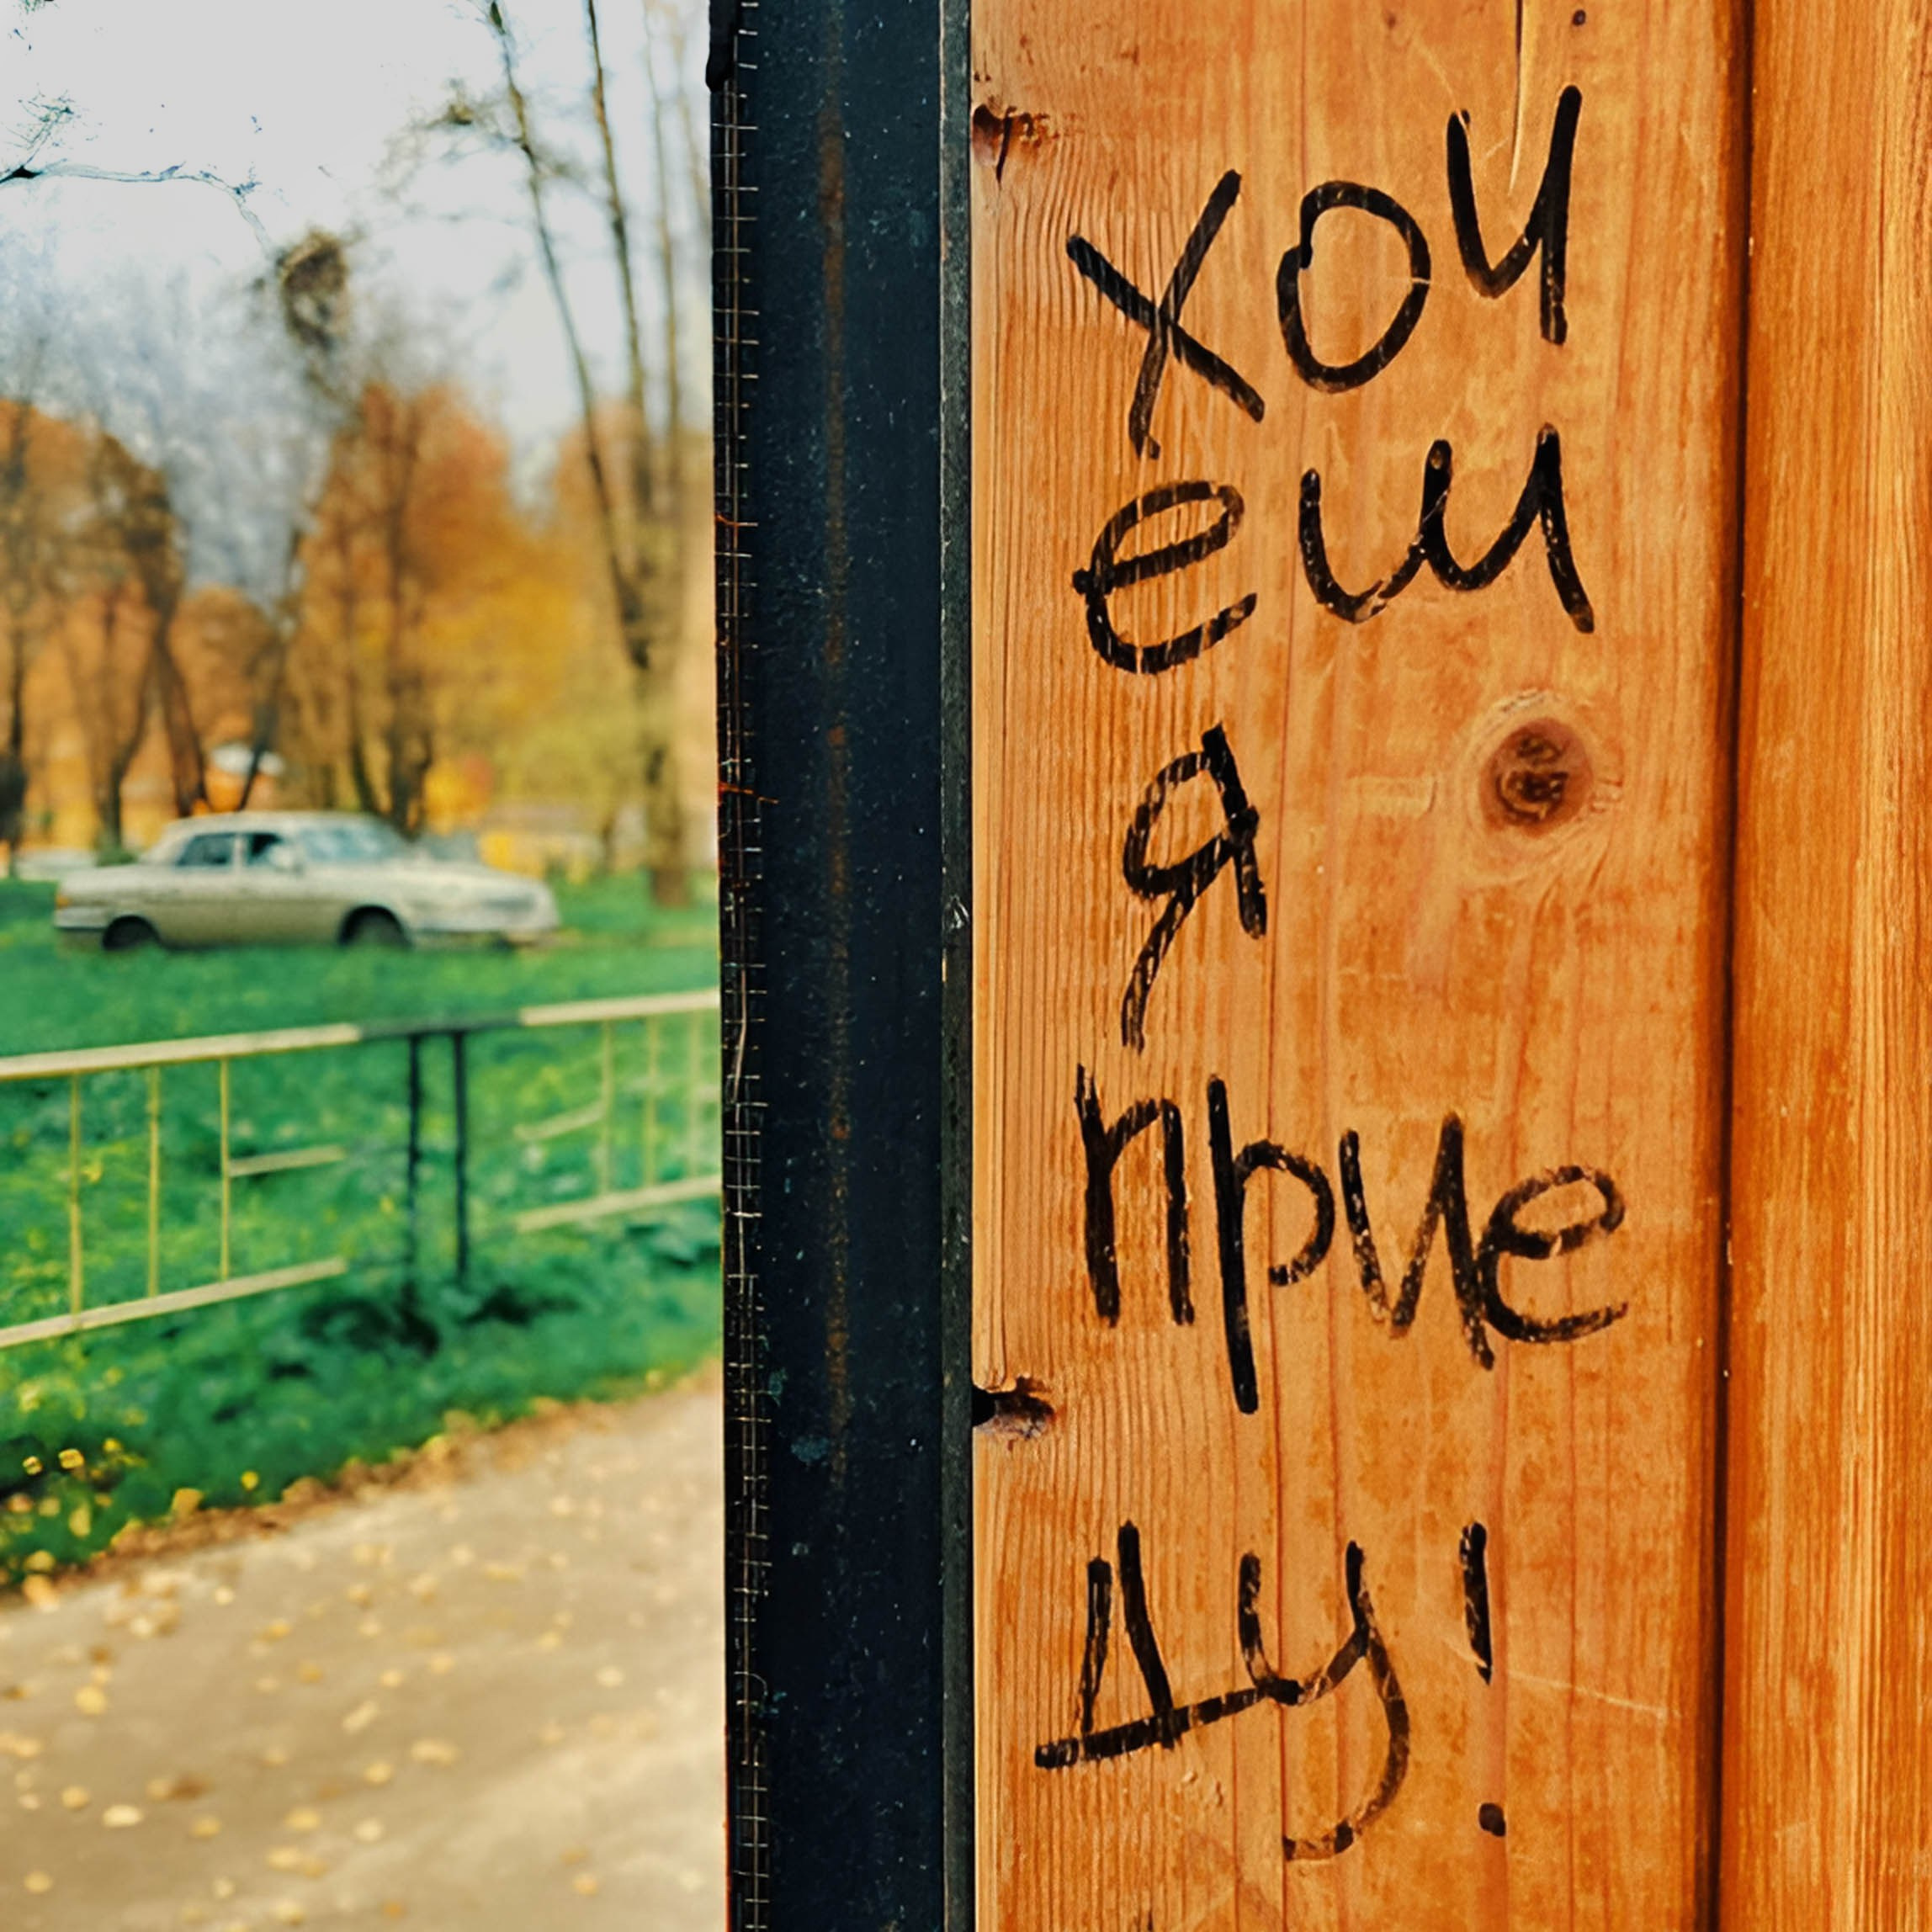 хоч
еш
я
прие
ду!